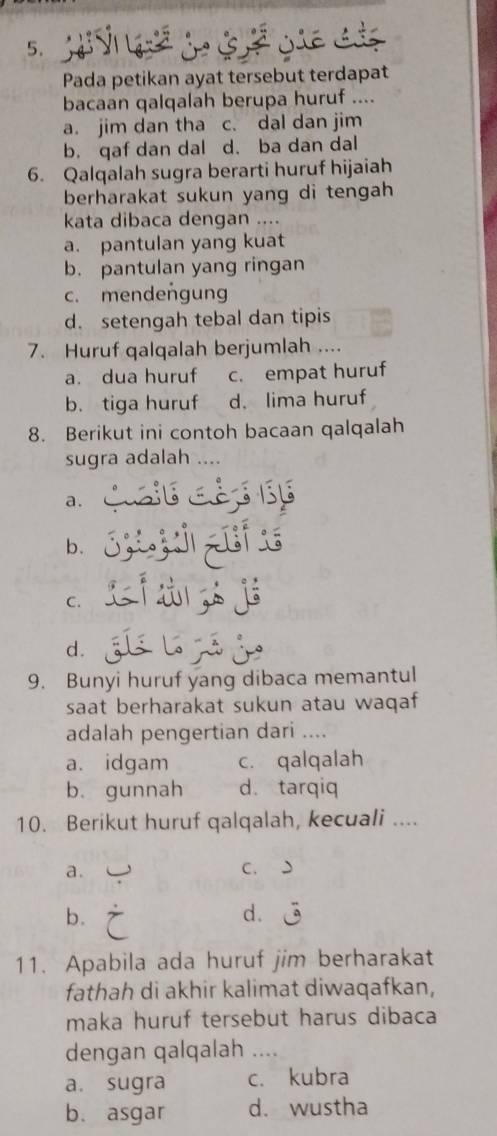 5. جَنّٰتُ عَدْنٍ تَجْرِيْ مِنْ تَحْتِهَا الْاَنْهٰرُ
Pada petikan ayat tersebut terdapat
bacaan qalqalah berupa huruf ....
a. jim dan tha c. dal dan jim
b. qaf dan dal d. ba dan dal
6. Qalqalah sugra berarti huruf hijaiah
berharakat sukun yang di tengah
kata dibaca dengan ....
a. pantulan yang kuat
b. pantulan yang ringan
c. mendengung
d. setengah tebal dan tipis
7. Huruf qalqalah berjumlah ....
a. dua huruf c. empat huruf
b. tiga huruf d. lima huruf
8. Berikut ini contoh bacaan qalqalah
sugra adalah ....
a. فَاِذَا فَرَغْتَ فَانْصَبْ
b. قَدْ اَفْلَحَ الْمُؤْمِنُوْنَ
c. قُلْ هُوَ اللّٰهُ اَحَدٌ
d. مِنْ شَرِّ مَا خَلَقَ
9. Bunyi huruf yang dibaca memantul
saat berharakat sukun atau waqaf
adalah pengertian dari ....
a. idgam c. qalqalah
b. gunnah d. tarqiq
10. Berikut huruf qalqalah, kecuali ....
a. ب c. د
b. خ d. ق
11. Apabila ada huruf jim berharakat
fathah di akhir kalimat diwaqafkan,
maka huruf tersebut harus dibaca
dengan qalqalah ....
a. sugra c. kubra
b. asgar d. wustha